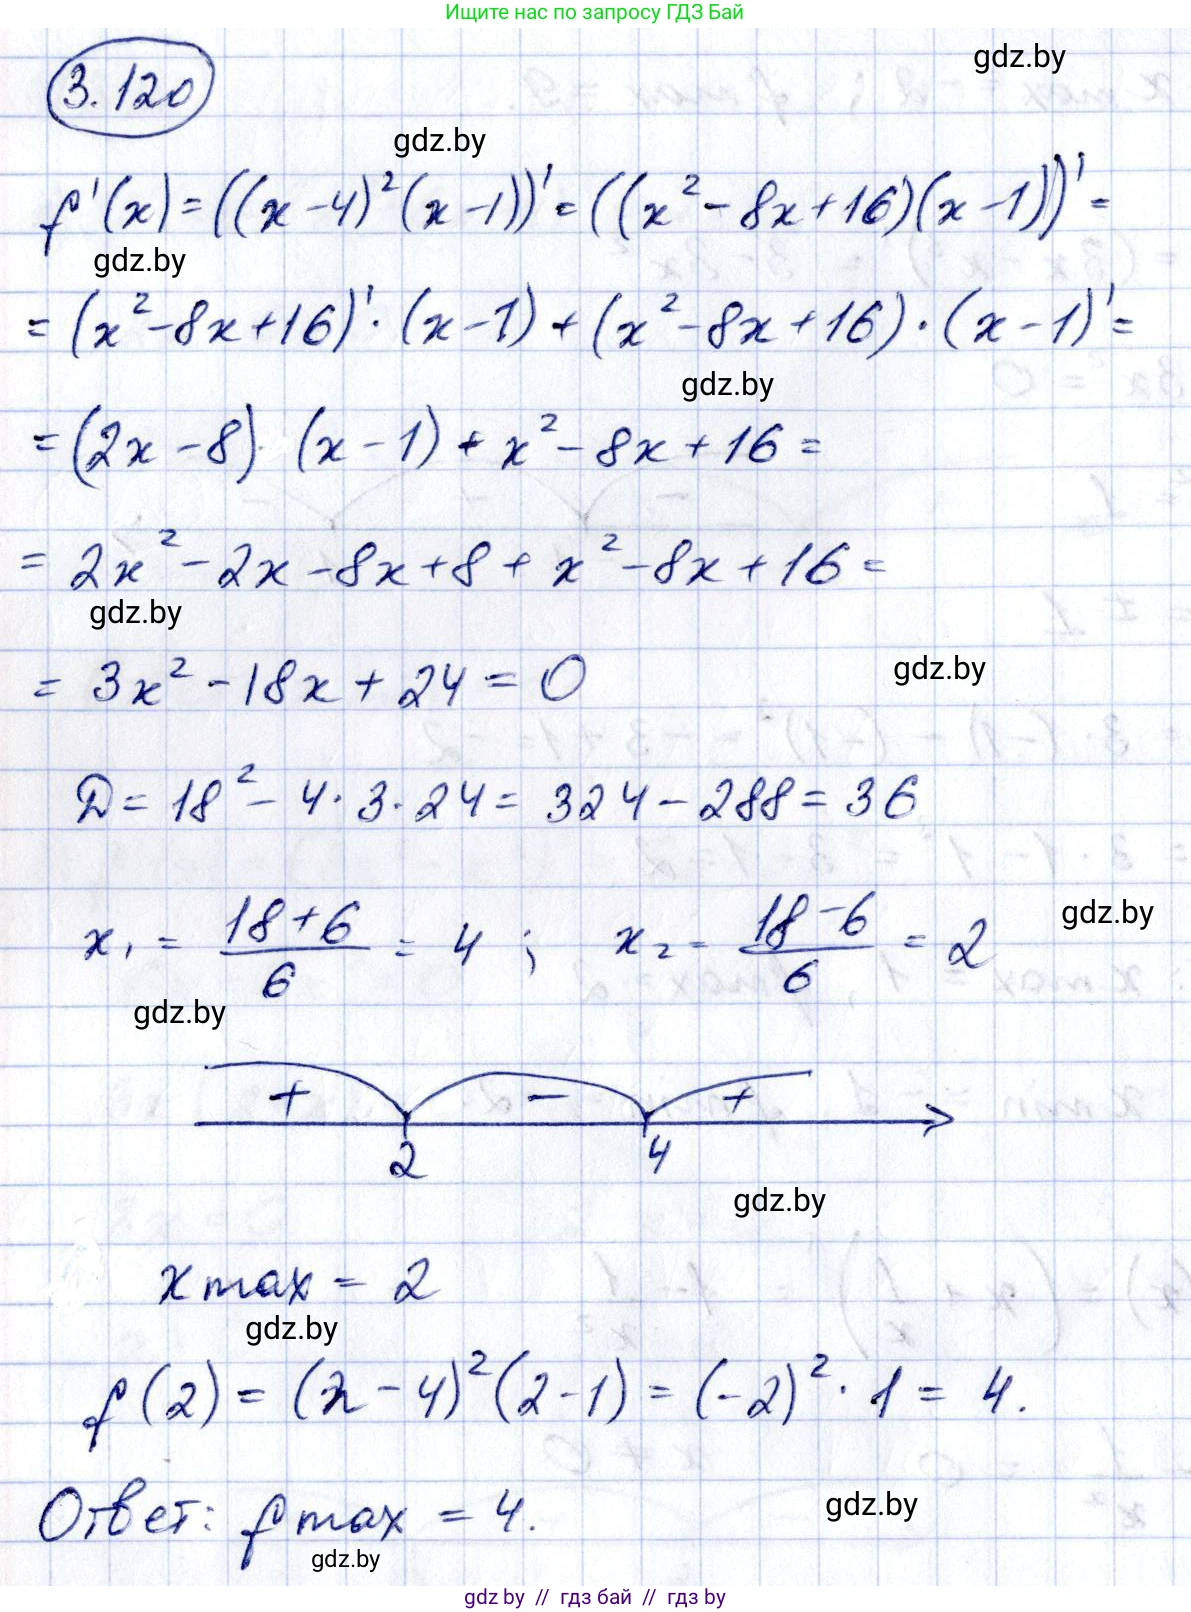 Ищите нас по запросу ГДЗ Бай
gdz.by
3.120
gdz.by
f'(x) = ((x-4)²(x-1))' = ((x² - 8x+16)(x-1))' =
gdz.by
= (x²-8x+16)' · (x-1) + (x²-8x+16) · (x-1)' =
gdz.by
= (2x-8) (x-1) + x² - 8x + 16 =
= 2x² - 2x - 8x + 8 + x² - 8x + 16 =
gdz.by
gdz.by
= 3x² - 18x + 24 = 0
D = 18² - 4 · 3 · 24 = 324 - 288 = 36
x₁ = (18+6)/6 = 4 ; x₂ = (18-6)/6 = 2
gdz.by
gdz.by
+ - +
2 4
gdz.by
x max = 2
gdz.by
f(2) = (x-4)²(2-1) = (-2)² · 1 = 4.
Ответ: f max = 4.
gdz.by
gdz.by
gdz by // гдз бай // гдз by